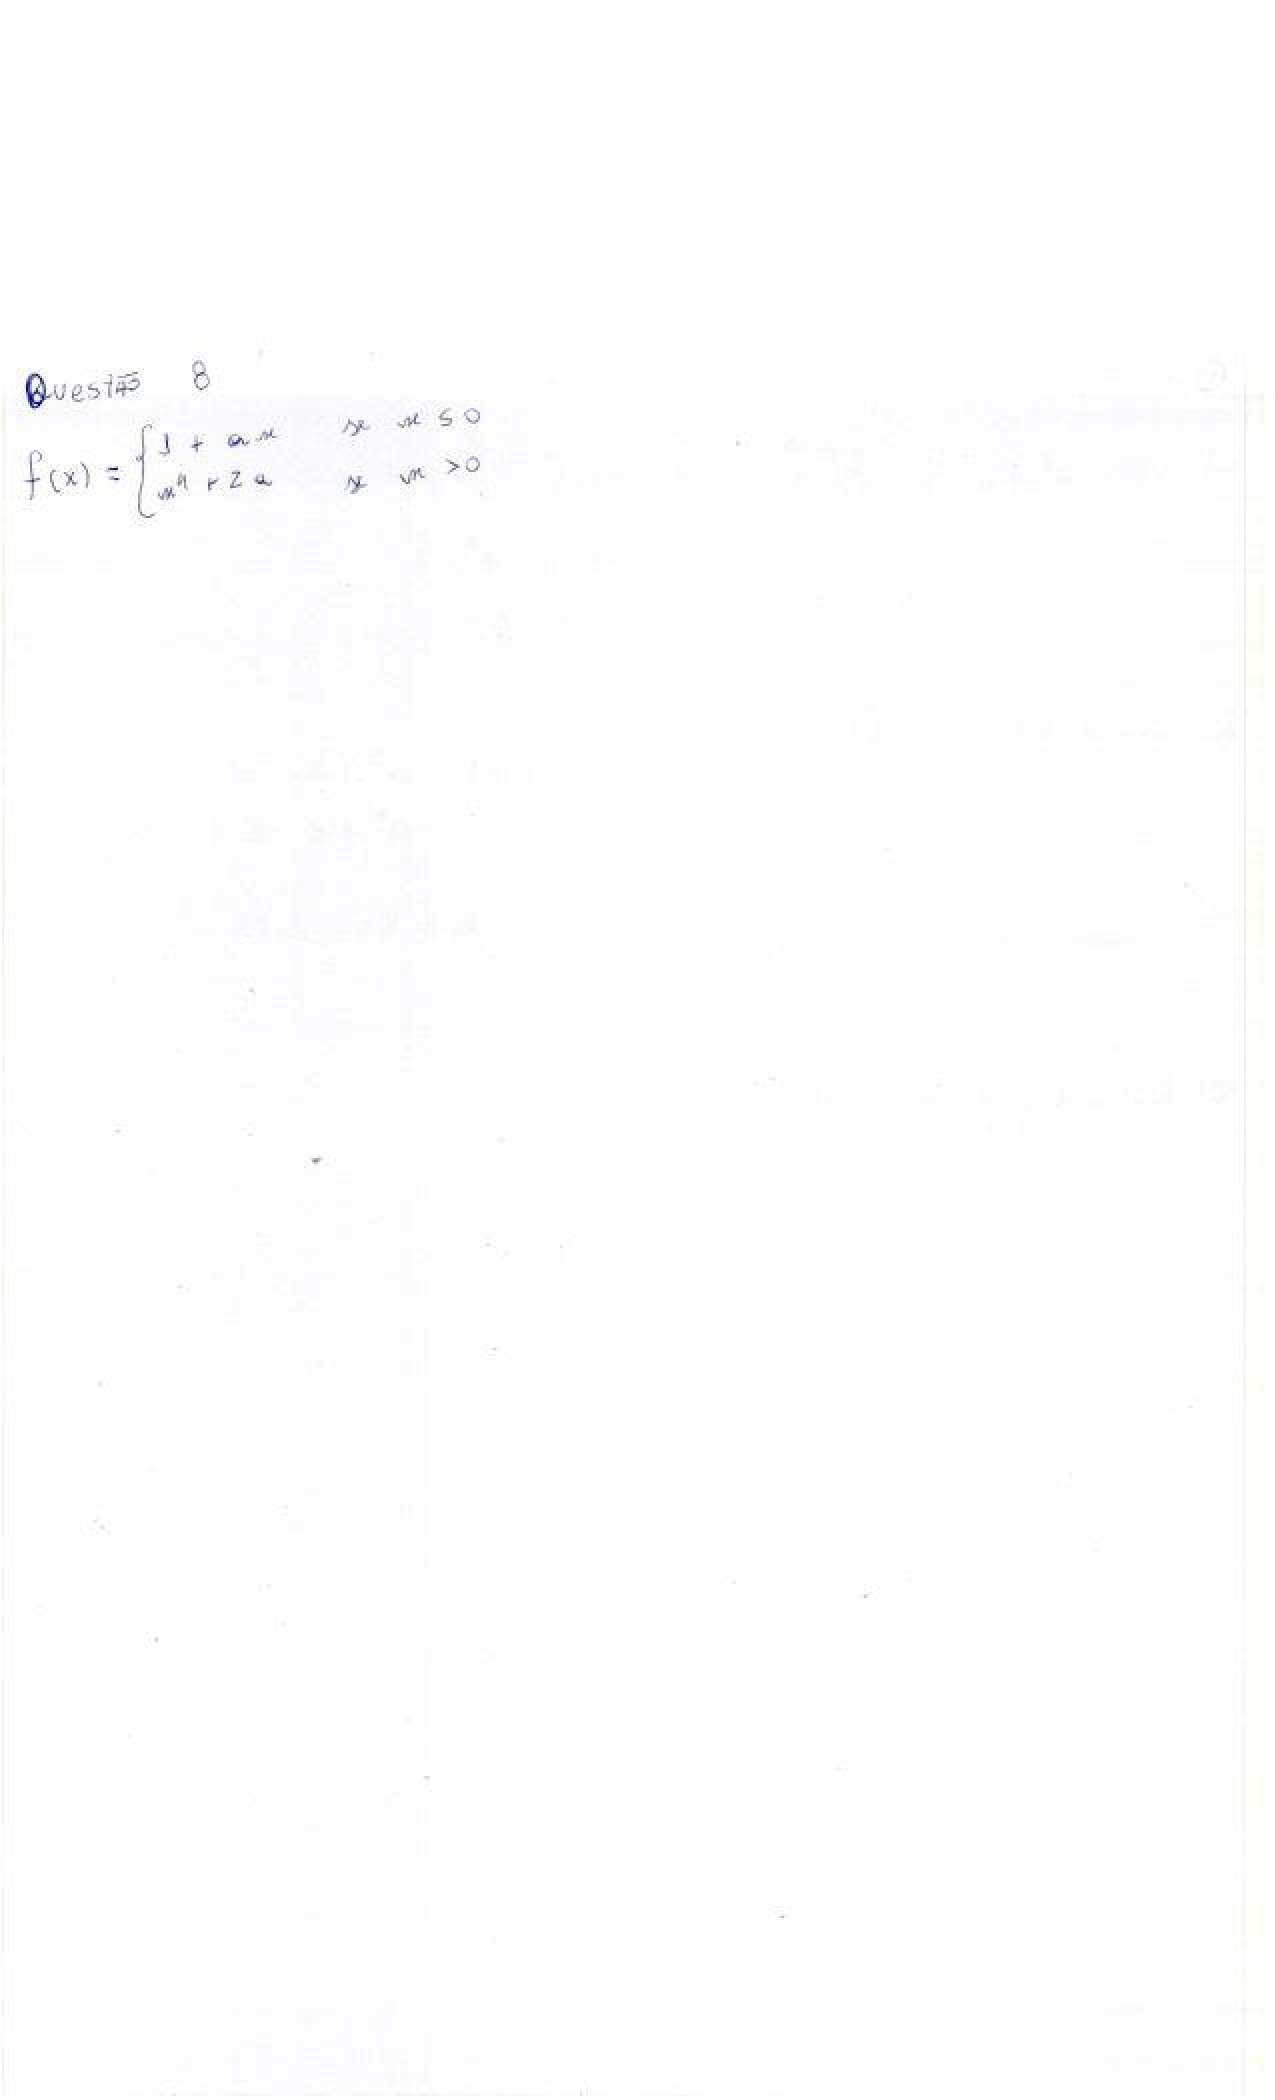 Questão 8
f(x) = { 1 + ax se x ≤ 0
x⁴ + 2a se x > 0